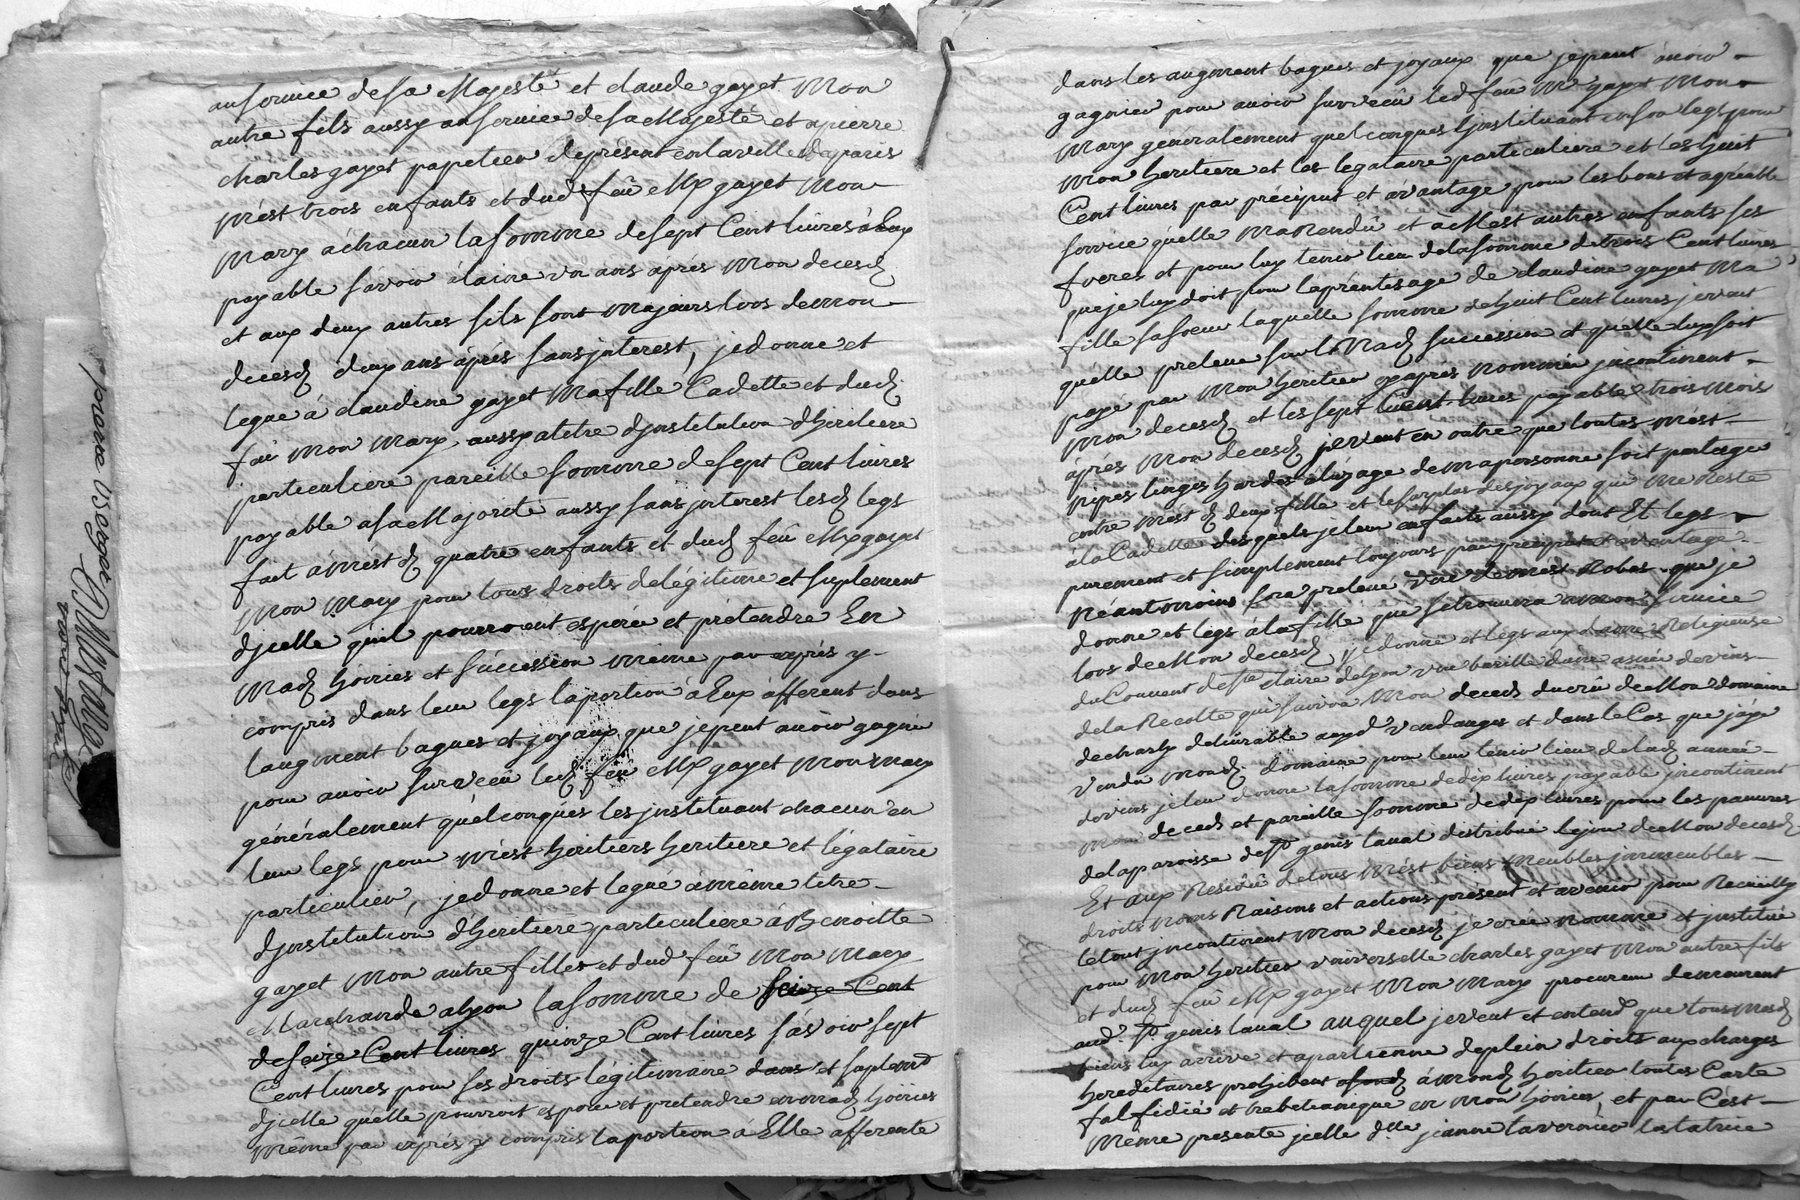 au service de sa Majesté et claude gayet Mon
autre fils aussy au service de sa Majesté et a pierre
charles gayet papetier deprésent en la ville de paris
mest trois enfants et dud feû Mr gayet Mon
Mary à chacun la somme de sept Cent livres à Eux
payable sávoir claire un ans áprés Mon decesd
et aux deux autres fils sont Majeurs lors de mon
decesd deux ans áprés sans jnterest, je donne et
legue à claudine gayet Ma fille Cadette et dud
feû Mon Mary aussy a titre djnstitution dheritiere
particuliere pareille somme de sept Cent livres
payable a sa Majorité aussy sans jnterest lesd legs
fait á mest d quatre enfants et dud feû Mr gayet
Mon Mary pour tous droits de légitime et suplement
djcelle quil pourroient espéré et prétendre En
Mad hoiries et succession même par exprés y
compris dans leur legs la portion à Eux afferent dans
laugment bagues et joyaux que je peut avoir gagnée
pour avoir surveçû led feû Mr gayet Mon Mary
généralement quélconqués les jnstituant chacun en
leur legs pour mést heritiers heritiere et légataire
particulier, je donne et legué à même titre
djnstitution dheritiere particuliere á Benoitte
gayet Mon autre filles et dud feû Mon Mary
Marchande a lyon la somme de seize Cent
de seize Cent livres quinze Cent livres sávoir sept
Cent livres pour ses droits legitimaire et suplemt
djcelle quélle pourroit esperer et pretendre en mad hoiries
même par exprés y compris la portion á Elle afferente
dans les augment bagues et joyaux que je peut ávoir
gagnée pour avoir surveçû led feû Mr gayet Mon
Mary généralement quélconques L'jnstituant en son legs pour
Mon heritiere et les legataire particuliere et les huit
Cent livres par préciput et avantage pour les bons et agreable
service quélle Ma Rendû et à Mest autres enfants ses
freres et pour luy tenir lieu de la somme de trois Cent livres
que je luy doit pour láprentissage de claudine gayet Ma
fille sa soeur laquelle somme de huit Cent livres je veut
quélle preleve sur Mad succession et quélle luy soit
payé par Mon heritier cy aprés nommé jncontinent
Mon decesd et les sept Cent livres payable trois Mois
áprés Mon decesd je veut en outre que toutes mest
nipes linges hardes à lusage de ma personne soit partagé
entre mest d deux fille et le surplus des joyaux qui Me Reste
á la Cadette desquels je leur en fait aussy dont Et legs
purement et simplement toujours par precipût et avantage
Neantmoins sera prelevé une de mest Robes que je
donne et legs á la fille que se trouvera a mon service
lors de Mon decesd je donne et legs aux dame Religieuse
du Couvent de Ste Claire de lyon une barille dasnée de vins
de la Recolte qui suivra Mon decesd du crû de Mon domaine
de charly delivrable auxd vendanges et dans le Cas que jáye
vendu Mond domaine pour leur tenir lieu de lad année
de vins je leur donne la somme de dix livres payable jncontinent
mon decesd et pareille somme de dix livres pour les pauvres
de la paroisse de St genis laval distribué le jour de Mon decesd
Et aux Residû de tous Mést biens Meubles jmmeubles
droits Noms Raisons et actions present et avenir pour Recueilly
le tout jncontinent Mon decesd je crée nomme et jnstitué
pour Mon heritier universelle charles gayet Mon autre fils
et dud feû Mr gayet Mon Mary procureur demeurent
aud. St genis laval auquel je veut et entend que tous Mesd
biens luy arrive et apartienne de plein droits aux charges
hereditaires prohibant á Mond heritier toutes Carte
falfidié et trebelianique en Mon hoirie, et par Cést
Même presente jcelle dlle jeanne tavernier testatrice